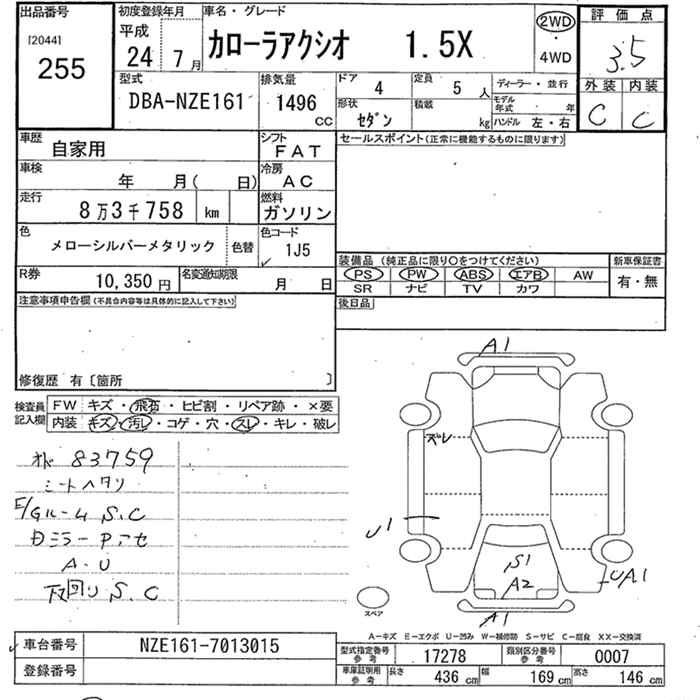 出品番号
[2044]
255
初度登録年月
平成
24 7月
車名・グレード
カローラアクシオ 1.5X
2WD
4WD
評価点
3.5
外装 内装
C C
型式
DBA-NZE161
排気量
1496 CC
ドア 4
定員 5 人
形状 セダン
積載 kg
ディーラー・並行
モデル年式 年
ハンドル 左・右
車歴 自家用
シフト FAT
車検 年 月( 日)
冷房 AC
走行 8万3千758 km
燃料 ガソリン
色 メローシルバーメタリック
色替
色コード 1J5
R券 10,350円
名変通知期限 月 日
セールスポイント(正常に機能するものに限ります)
装備品 (純正品に限り○をつけてください)
新車保証書
有・無
PS PW ABS エアB AW
SR ナビ TV カワ
後日品
注意事項申告欄(不具合内容等は具体的に記入して下さい)
修復歴 有〔箇所 〕
検査員記入欄
FW キズ・飛石・ヒビ割・リペア跡・×要
内装 キズ・汚レ・コゲ・穴・スレ・キレ・破レ
オド 83759
シートヘタリ
E/Gルーム S.C
Dミラー Pアセ
A.U
下回り S.C
A1
ズレ
U1
S1
A2
UA1
A1
スペア
A-キズ E-エクボ U-凹み W-補修跡 S-サビ C-腐食 XX-交換済
車台番号 NZE161-7013015
登録番号
型式指定番号 参考 17278
類別区分番号 参考 0007
車庫証明用 参考
長さ 436 cm
幅 169 cm
高さ 146 cm